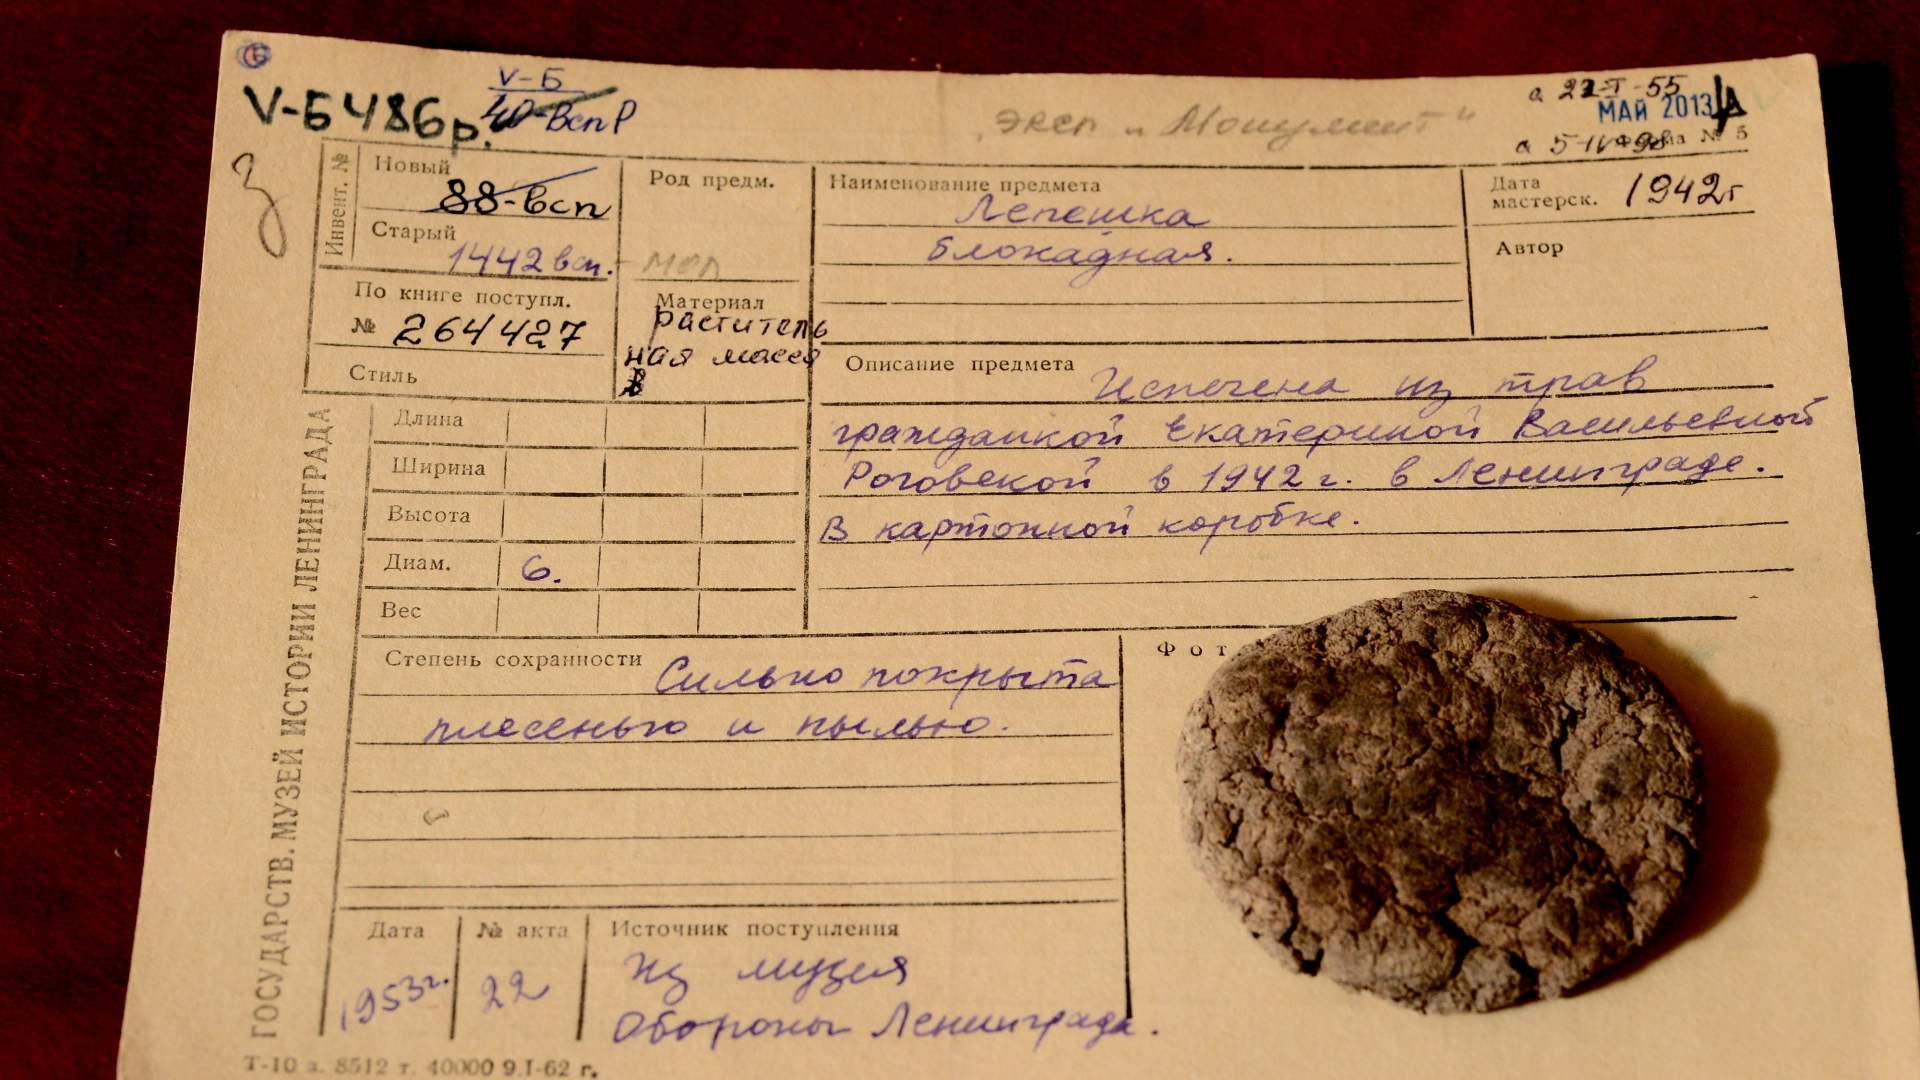 V-Б 486р.
V-Б
40-Вспр
эксп „Монумент"
а 22-I-55
МАЙ 2013
а 5-IV-98
Форма № 5
З
Инвент. №
Новый
88-всп
Старый
1442 всп.
Род предм.
Наименование предмета
Лепешка
блокадная.
Дата
мастерск. 1942г
Автор
По книге поступл.
№ 264427
Материал
раститель
ная масса
Стиль
Описание предмета
Испечена из трав
гражданкой Екатериной Васильевной
Роговской в 1942 г. в Ленинграде.
В картонной коробке.
Длина
Ширина
Высота
Диам. 6.
Вес
ГОСУДАРСТВ. МУЗЕЙ ИСТОРИИ ЛЕНИНГРАДА
Степень сохранности Сильно покрыта
плесенью и пылью.
Фот
Дата
1953г.
№ акта
22
Источник поступления
Из музея
Обороны Ленинграда.
Т-10 з. 8512 т. 40000 9.I-62 г.